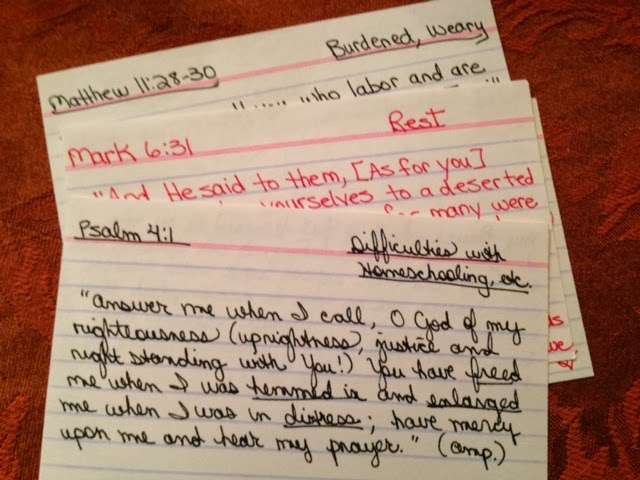 Burdened, Weary
Matthew 11:28-30
who labor and are
Rest
Mark 6:31
"And He said to them, [As for you]
yourselves to a deserted
many were
Psalm 4:1
Difficulties with
Homeschooling, etc.
"Answer me when I call, O God of my
righteousness (uprightness, justice and
right standing with You!) You have freed
me when I was hemmed in and enlarged
me when I was in distress; have mercy
upon me and hear my prayer." (amp.)